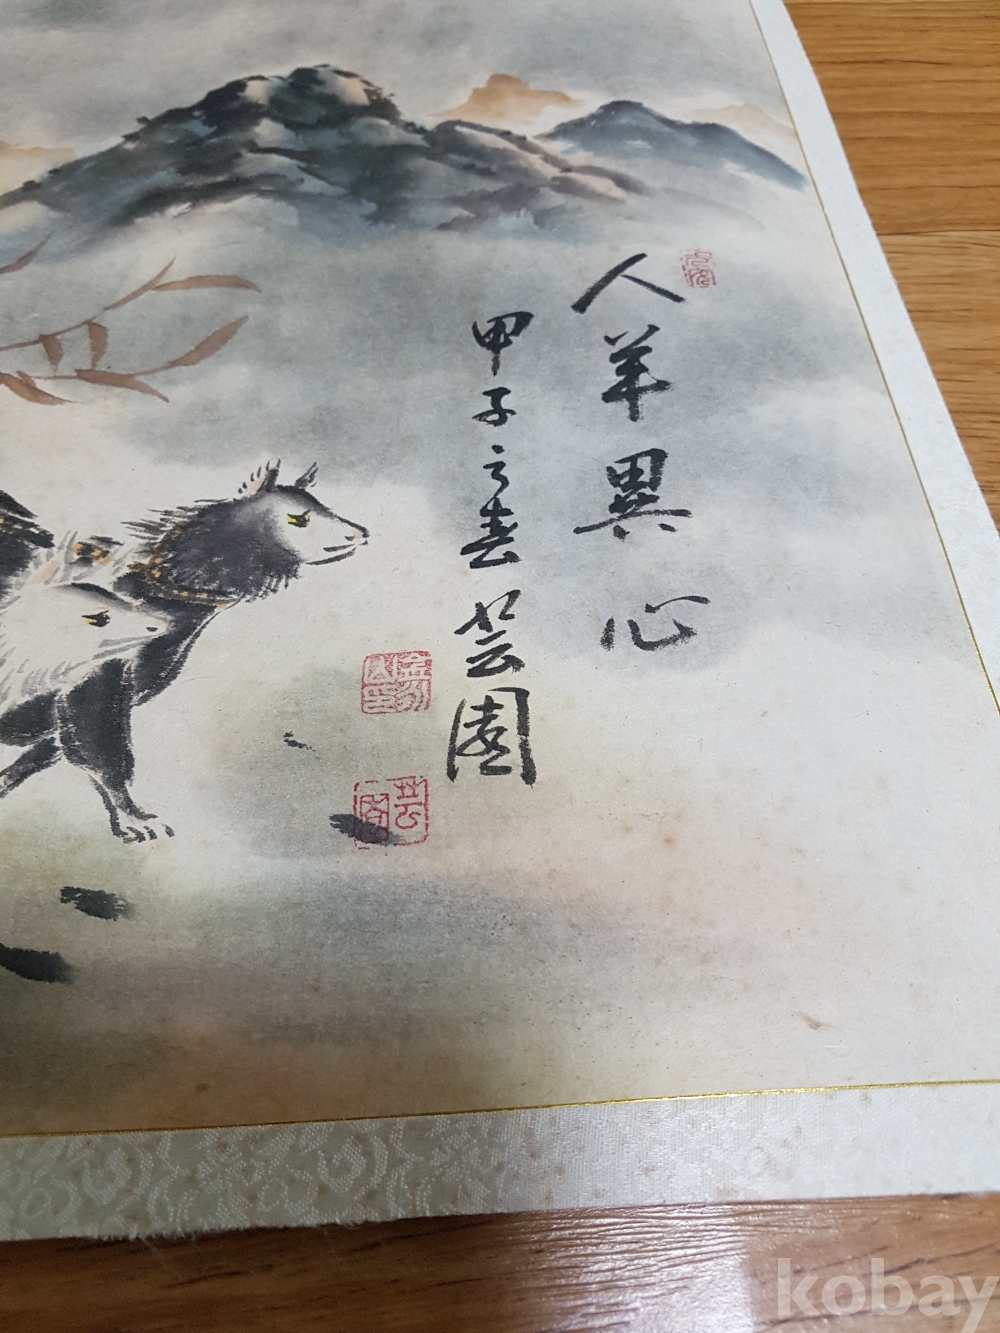 人羊異心
甲子之春 芸園
芸
kobay